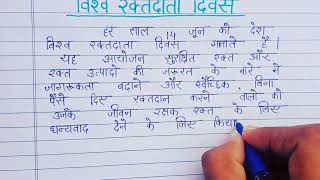 विश्व रक्तदाता दिवस
हर साल 14 जून को देश
विश्व रक्तदाता दिवस मनाते हैं।
यह आयोजन सुरक्षित रक्त और
रक्त उत्पादों की जरूरत के बारे में
जागरूकता बढ़ाने और स्वैच्छिक, बिना
पैसे दिए रक्तदान करने वालों को
उनके जीवन रक्षक रक्त के लिए
धन्यवाद देने के लिए किया